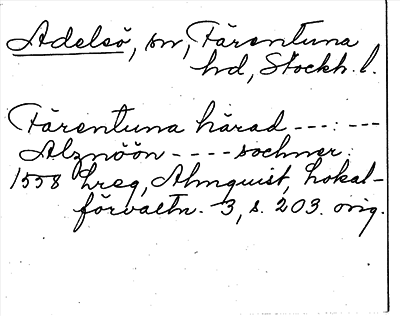 Adelsö, sn, Färentuna
hd, Stockh. l.
Färentuna härad ---: ---
Alznöön ---- sochner:
1558 hreg, Almquist, Lokal-
förvaltn. 3, s. 203. orig.